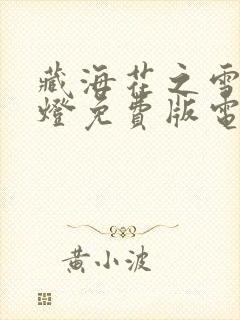 藏海花之雪
燈免費版電
黃小波